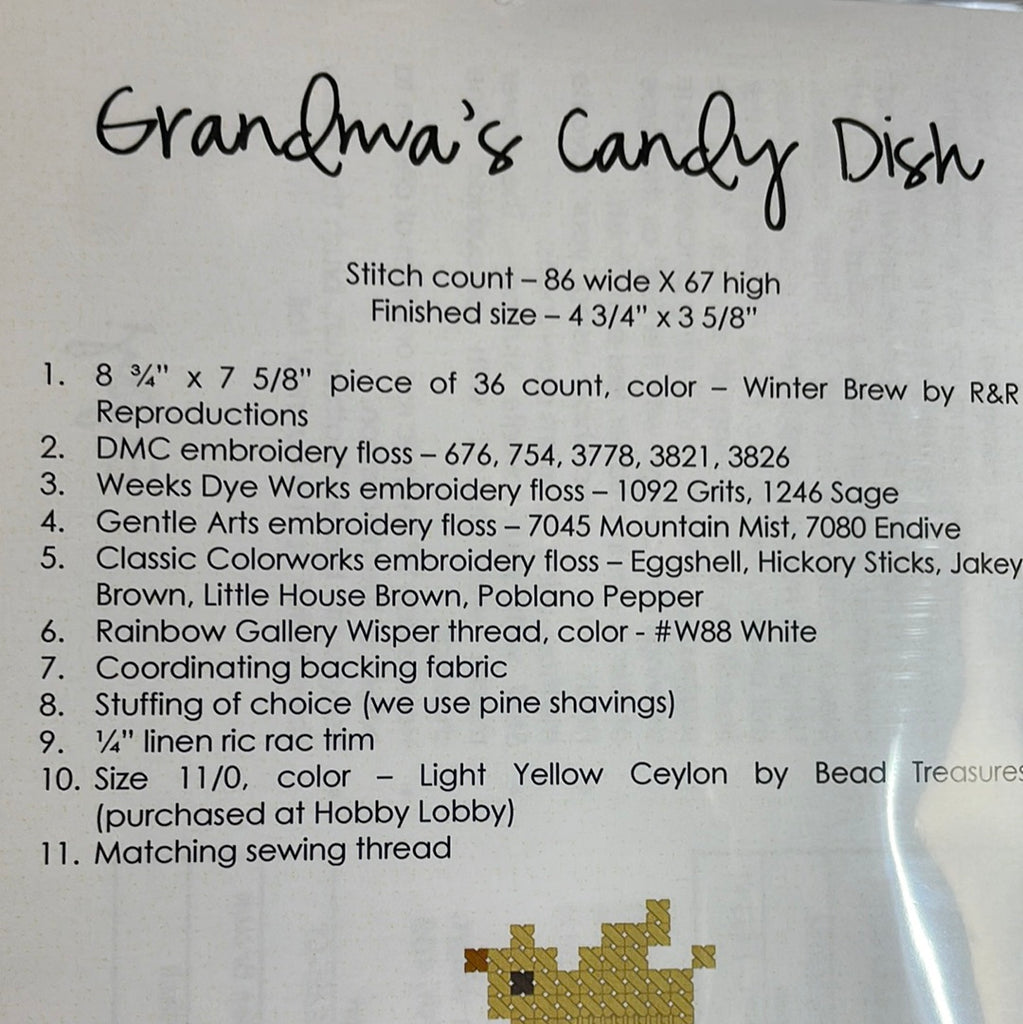 Grandma's Candy Dish
Stitch count – 86 wide X 67 high
Finished size – 4 3/4" x 3 5/8"
1. 8 ¾" x 7 5/8" piece of 36 count, color – Winter Brew by R&R
Reproductions
2. DMC embroidery floss – 676, 754, 3778, 3821, 3826
3. Weeks Dye Works embroidery floss – 1092 Grits, 1246 Sage
4. Gentle Arts embroidery floss – 7045 Mountain Mist, 7080 Endive
5. Classic Colorworks embroidery floss – Eggshell, Hickory Sticks, Jakey
Brown, Little House Brown, Poblano Pepper
6. Rainbow Gallery Wisper thread, color - #W88 White
7. Coordinating backing fabric
8. Stuffing of choice (we use pine shavings)
9. ¼" linen ric rac trim
10. Size 11/0, color – Light Yellow Ceylon by Bead Treasures
(purchased at Hobby Lobby)
11. Matching sewing thread